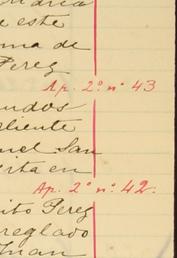 de este
ma de
Perez
Ap. 2º nº 43
udos
liente
uel San
cita en
Ap. 2º nº 42.
ito Perez
reglado
Juan